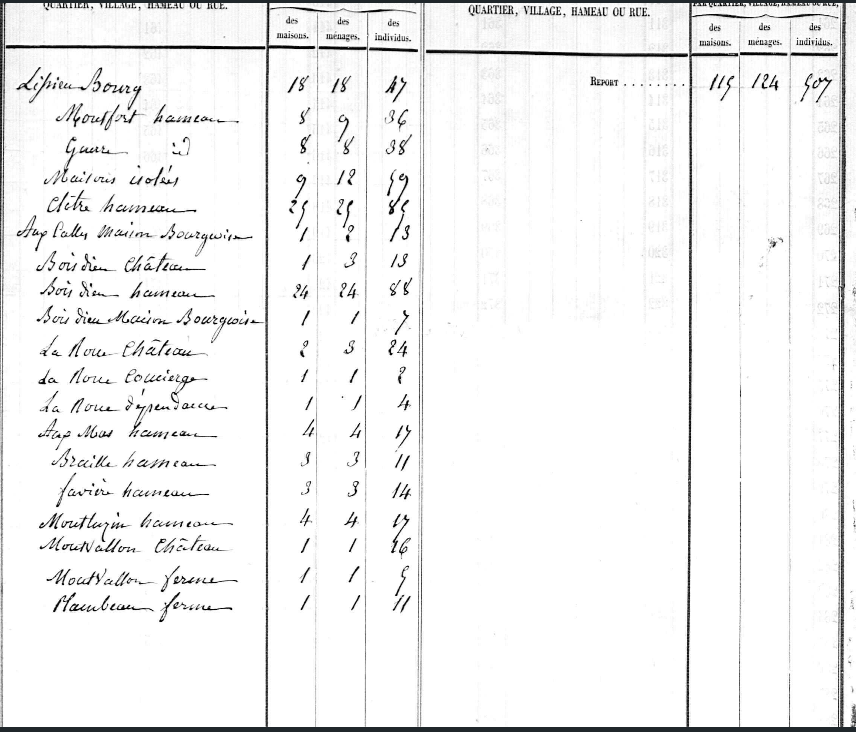 QUARTIER, VILLAGE, HAMEAU OU RUE.
des maisons. des ménages. des individus.
Lissieu Bourg 18 18 47
Montfort hameau 8 9 36
Guerre id 8 8 38
Maisons isolées 9 12 59
hameau 25 25 85
Maison Bourgeoise 1 2 13
Bois dieu Château 1 3 13
Bois dieu hameau 24 24 88
Bois dieu Maison Bourgeoise 1 1 7
La Roue Château 2 3 24
La Roue Concierge 1 1 2
La Roue dépendance 1 1 4
Aux Mas hameau 4 4 17
Braille hameau 3 3 11
favière hameau 3 3 14
Montluzin hameau 4 4 17
Montvallon Château 1 1 16
Montvallon ferme 1 1 5
Plambeau ferme 1 1 11
QUARTIER, VILLAGE, HAMEAU OU RUE.
PAR QUARTIER, VILLAGE, HAMEAU OU RUE,
des maisons. des ménages. des individus.
REPORT ........ 115 124 507